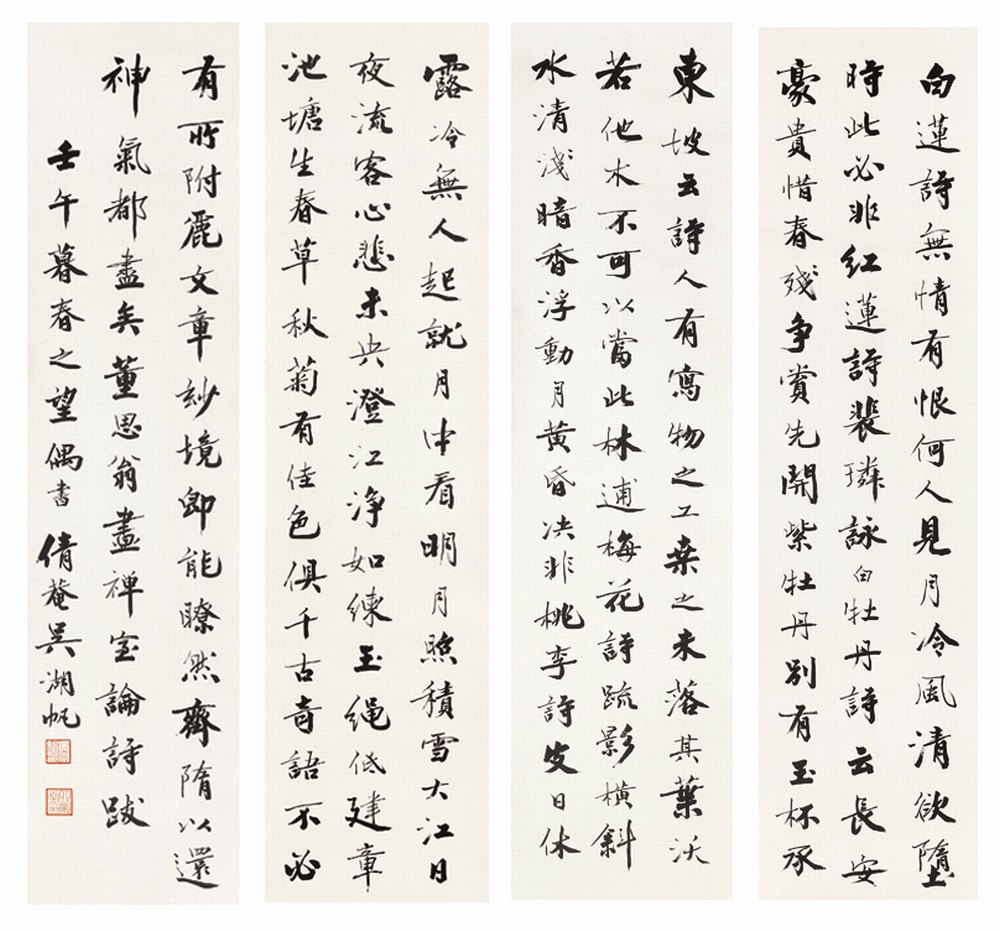 白蓮詩無情有恨何人見月冷風清欲墮
時此必非紅蓮詩裴璘詠白牡丹詩云長安
豪貴惜春殘爭賞先開紫牡丹別有玉杯承
東坡云詩人有寫物之工桒之未落其葉沃
若他木不可以當此林逋梅花詩疏影橫斜
水清淺暗香浮動月黃昏决非桃李詩皮日休
露冷無人起就月中看明月照積雪大江日
夜流客心悲未央澄江淨如練玉繩低建章
池塘生春草秋菊有佳色俱千古奇語不必
有所附麗文章妙境即能瞭然齊隋以還
神氣都盡矣董思翁畫禅室論詩跋
壬午暮春之望偶書倩菴吳湖帆